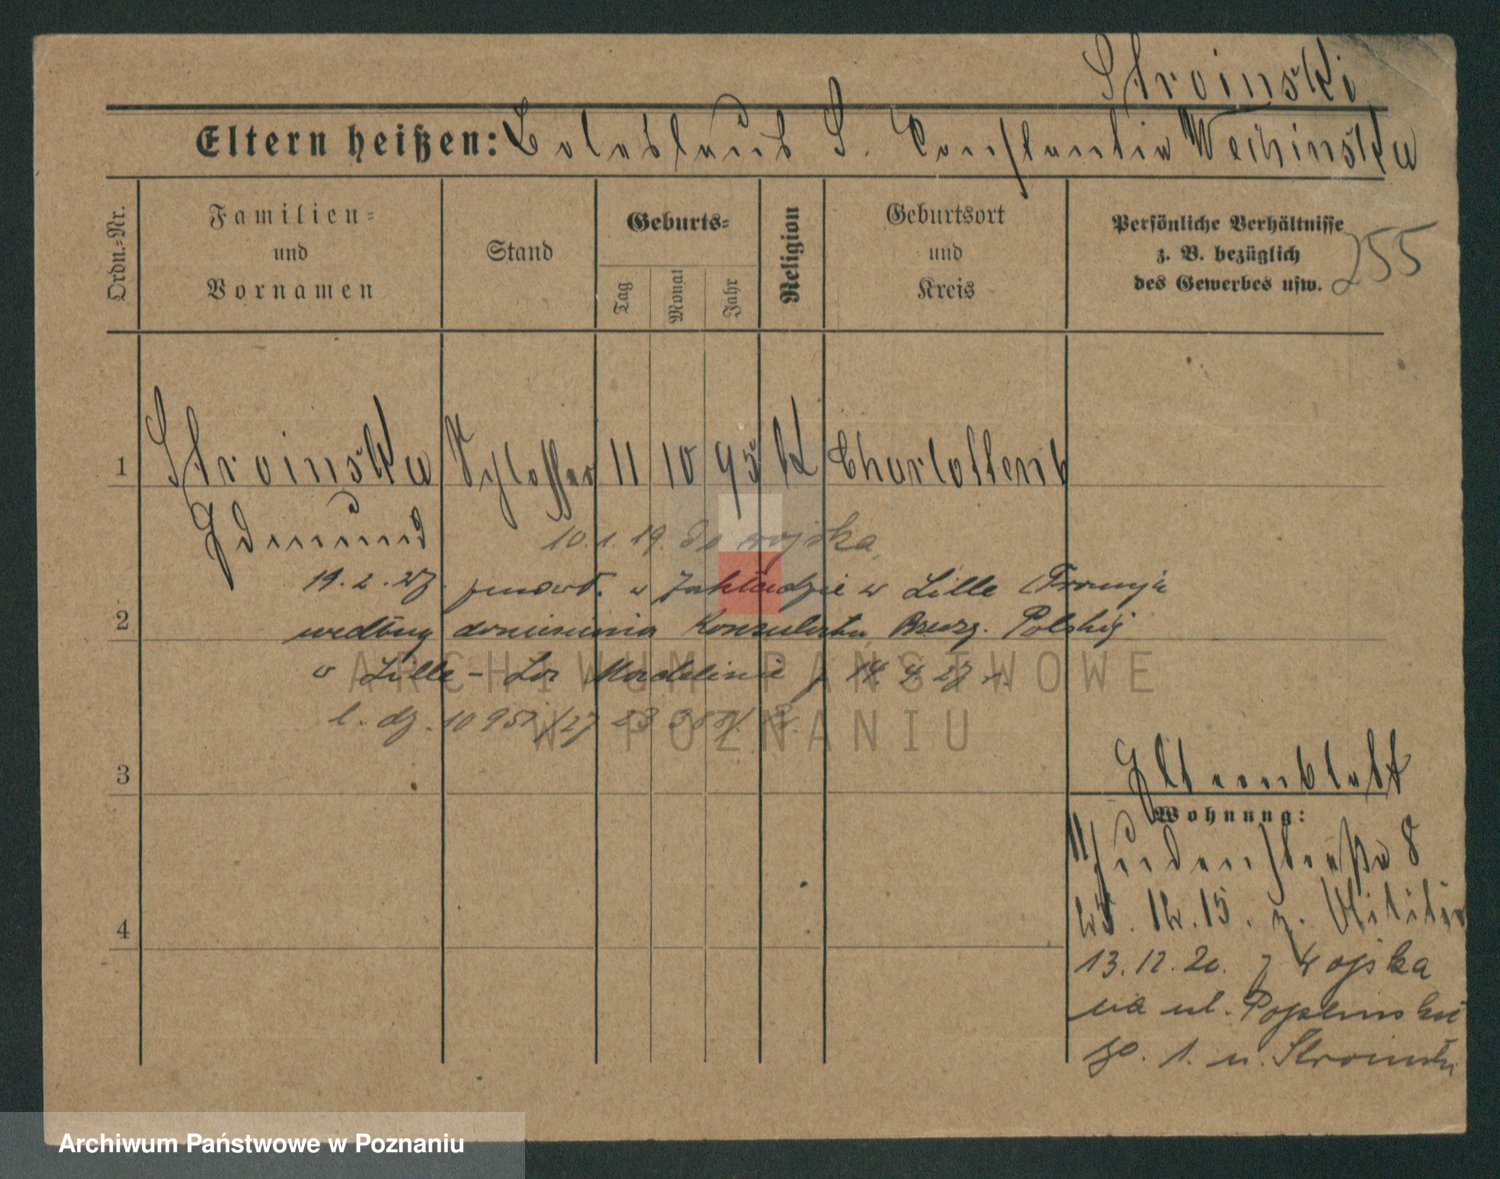 Stroinski
Eltern heißen: Boleslaus S. Constantia Wechinska
Ordn.=Nr.
Familien=
und
Vornamen
Stand
Geburts=
Tag
Monat
Jahr
Religion
Geburtsort
und
Kreis
Persönliche Verhältnisse
z. B. bezüglich
des Gewerbes usw.
255
1
Stroinski Schlosser 11 10 95 K Charlottenb
Edmund
10. 1. 19. do wojska
19. 2. 27. w Zakładzie w Lille Francja
2
według doniesienia Konsulatu Polskiej
w Lille - La Madeleine z 14. 4. 27 r.
l. dz.
ARCHIWUM PAŃSTWOWE
W POZNANIU
3
Elternblatt
Wohnung:
Judenstraße 8
4
12. 15. z. Militär
13. 12. 20. z wojska
na ul.
1. u. Stroinski
Archiwum Państwowe w Poznaniu